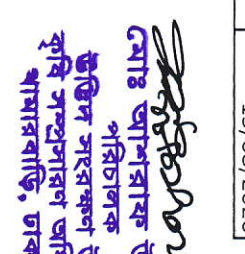 মোঃ আশরাফ উ
পরিচালক
উদ্ভিদ সংরক্ষণ উ
কৃষি সম্প্রসারণ অধি
খামারবাড়ি, ঢাক